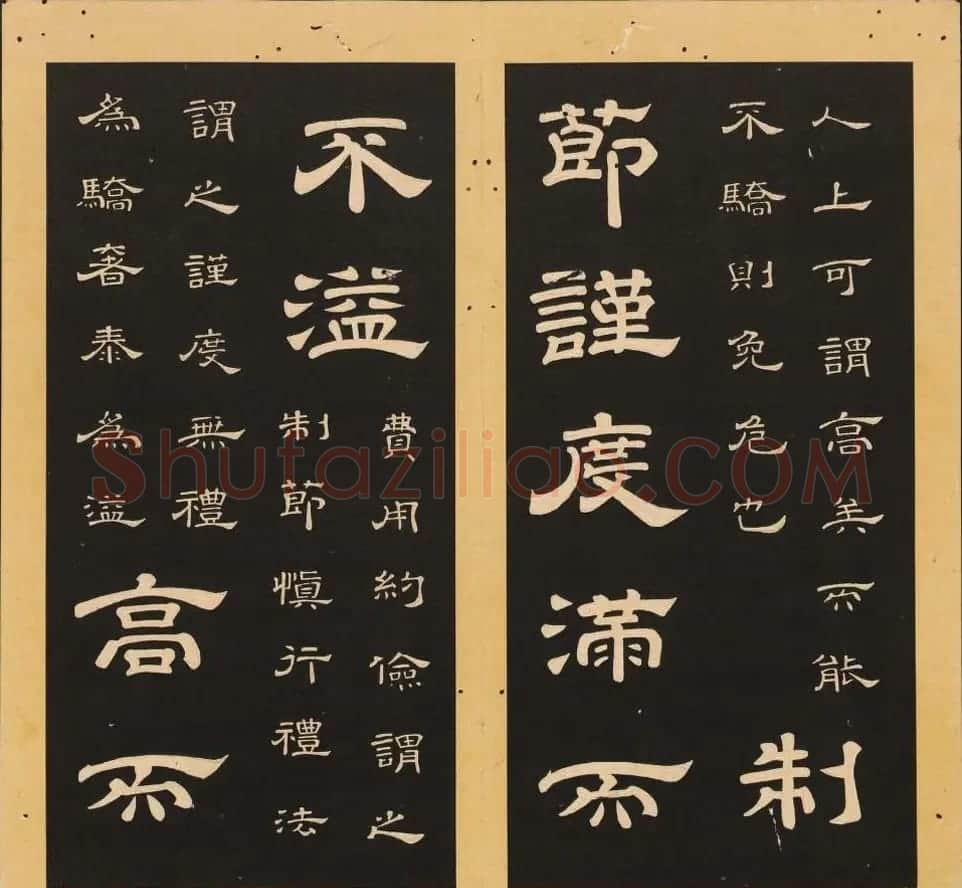 人上可謂高矣而能
不驕則免危也
制
節謹度滿而
不溢
費用約儉謂之
制節慎行禮法
謂之謹度無禮
為驕奢泰為溢
高而
Shufaziliao.COM